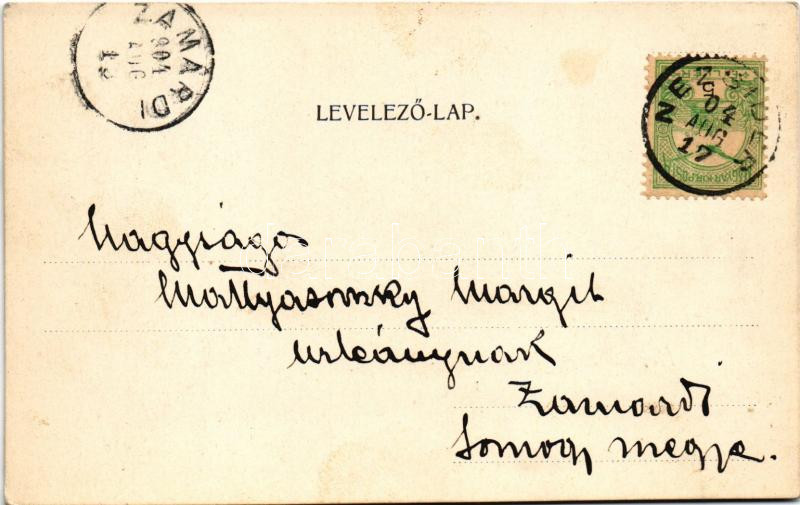 ZAMÁRDI
904
AUG
LEVELEZŐ-LAP.
NEZSIDER
904
AUG
17
MAGYAR KIR. POSTA
Nagysága
Mattyasovszky Margit
urleánynak
Zamardi
Somogy megye.